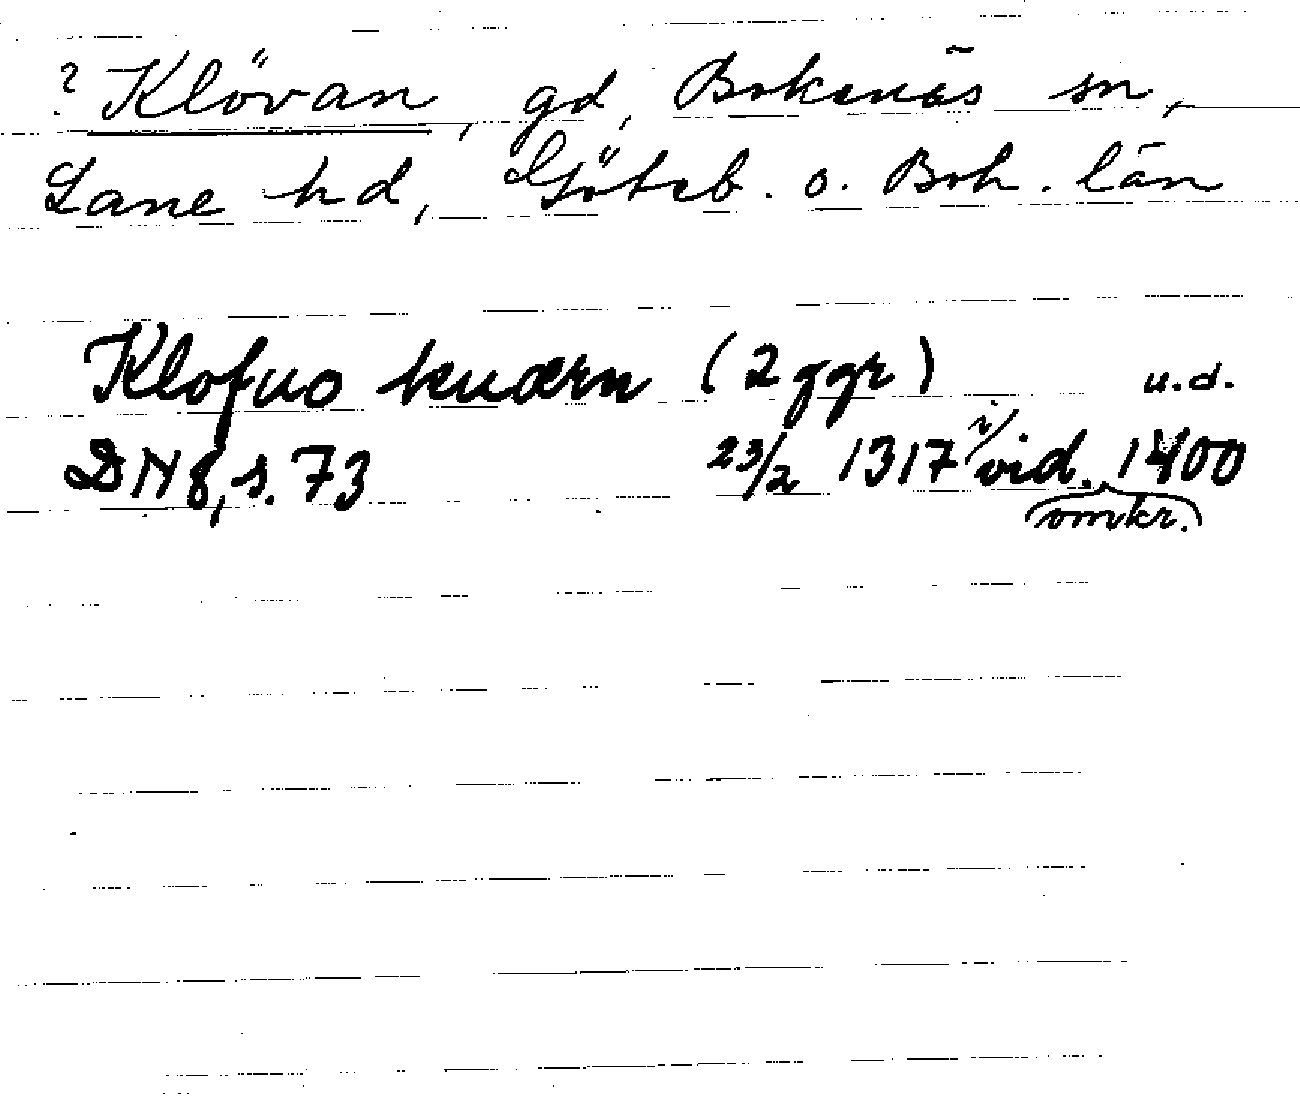 ? Klövan, gd, Bokenäs sn,
Lane hd, Göteb. o. Boh. län
Klofuo kuærn (2 ggr) u.d.
DN 8, s. 73 23/2 1317 i/ vid. 1400
omkr.